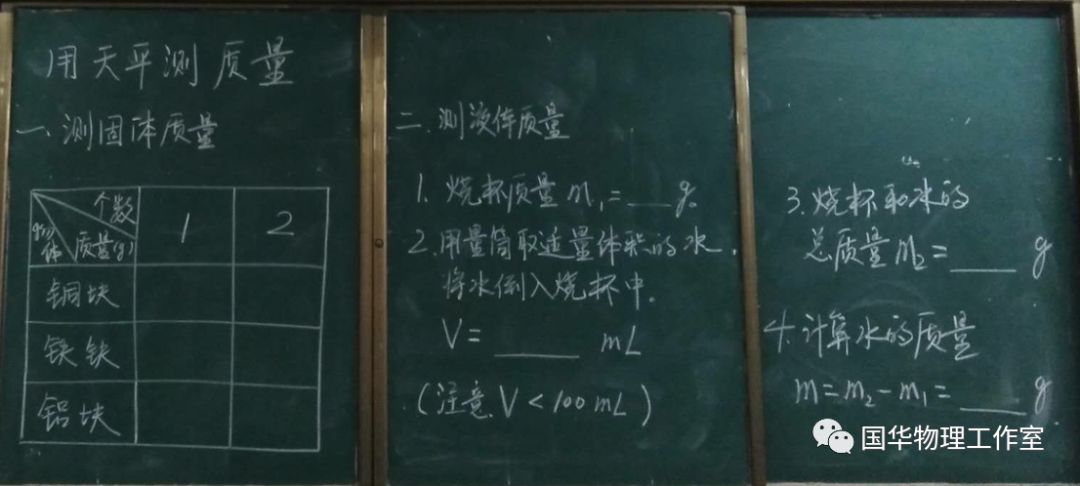 用天平测质量
一、测固体质量
个数
物体 质量(g) 1 2
铜块
铁铁
铝块
二.测液体质量
1. 烧杯质量m₁=___g。
2.用量筒取适量体积的水,
将水倒入烧杯中。
V= ____ mL
(注意.V<100mL)
3.烧杯和水的
总质量m₂=____ g
4.计算水的质量
m=m₂-m₁=____g
国华物理工作室